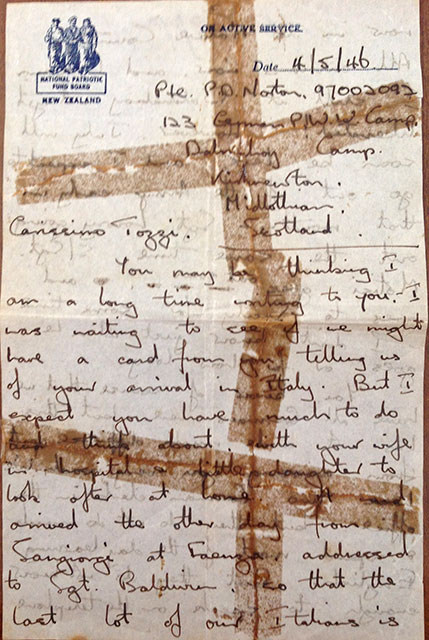 ON ACTIVE SERVICE.
NATIONAL PATRIOTIC
FUND BOARD
NEW ZEALAND
Date 4/5/46
Pte. P.D. Norton, 97002092
123 German P.W.W. Camp.
Dalmahoy Camp.
Kirknewton.
Midlothian.
Scotland.
Carissimo Tozzi.
You may be thinking I
am a long time writing to you. I
was waiting to see if we might
have a card from you telling us
of your arrival in Italy. But I
expect you have much to do
and think about, with your wife
in hospital & little daughter to
look after at home. A card
arrived the other day from
Sangiorgi at Faenza addressed
to Sgt. Baldwin. so that the
last lot of our Italians is